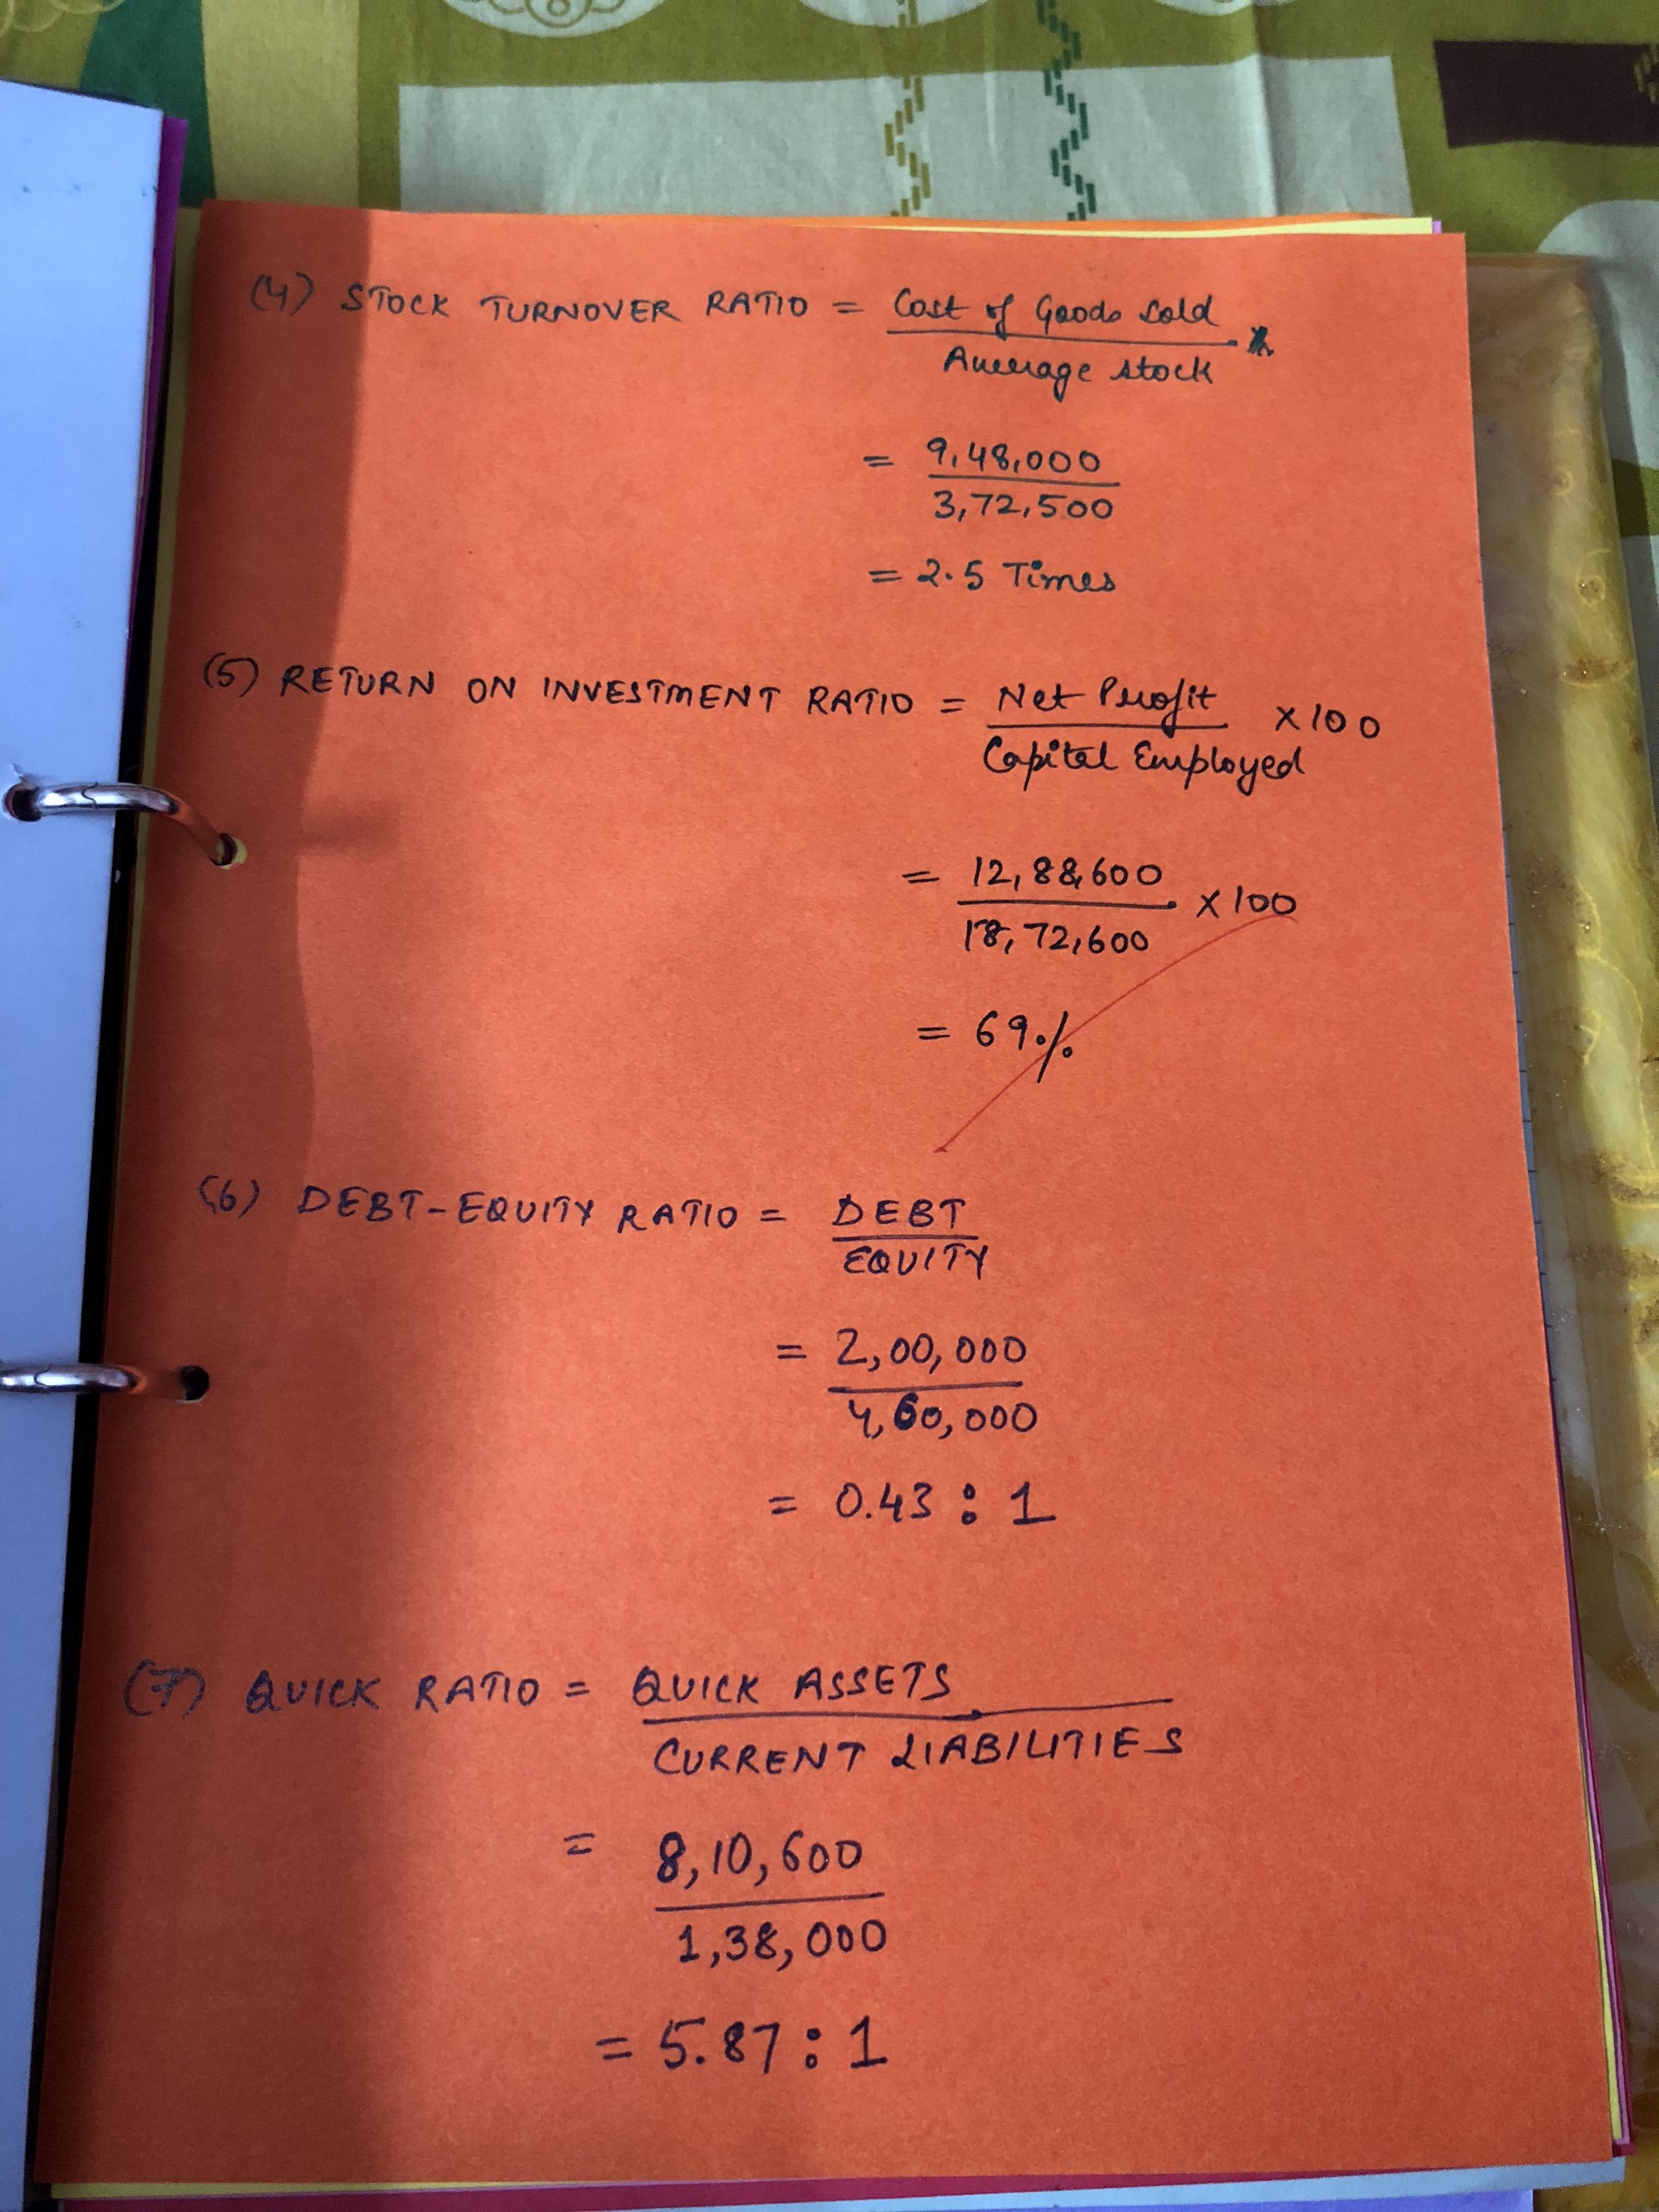 (4) STOCK TURNOVER RATIO = Cost of Goods Sold
Average stock
= 9,48,000
3,72,500
= 2.5 Times
(5) RETURN ON INVESTMENT RATIO = Net Profit × 100
Capital Employed
= 12,88,600 × 100
18,72,600
= 69%
(6) DEBT-EQUITY RATIO = DEBT
EQUITY
= 2,00,000
4,60,000
= 0.43 : 1
(7) QUICK RATIO = QUICK ASSETS
CURRENT LIABILITIES
= 8,10,600
1,38,000
= 5.87 : 1